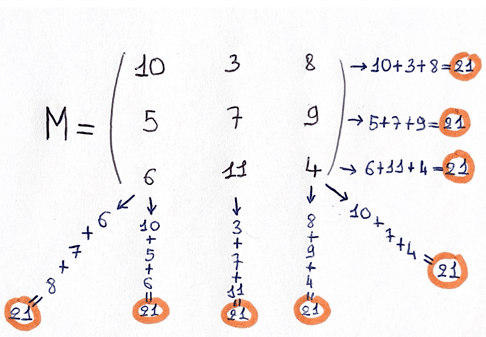 10 3 8 →10+3+8=21
M= 5 7 9 →5+7+9=21
6 11 4 → 6+11+4=21
8+7+6=21
10+5+6=21
3+7+11=21
8+9+4=21
10+7+4=21